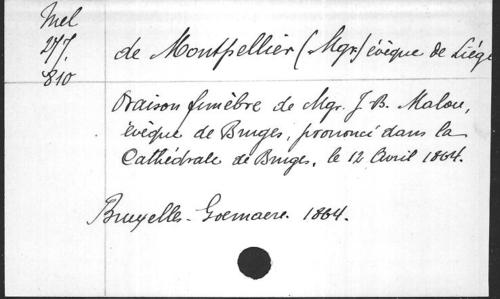 Mel
277.
810
de Montpellier (Mgr) évêque de Liége
Oraison funèbre de Mgr. J. B. Malou,
évêque de Bruges, prononcé dans la
Cathédrale de Bruges, le 12 Avril 1864.
Bruxelles - Goemaere. 1864.